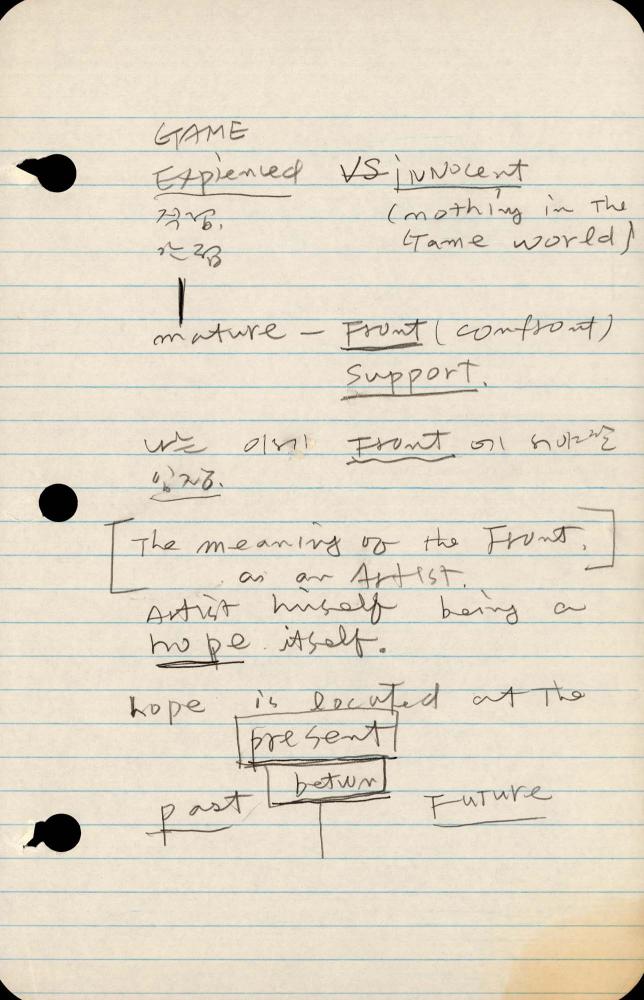 GAME
Expienced VS innocent
(nothing in The
Game world)
mature — Front (confront)
Support.
나는 이제 Front 에 서야할
입장.
[The meaning of the Front.
as an Artist.]
Artist himself being a
hope itself.
hope is located at The
present
betwn
past Future